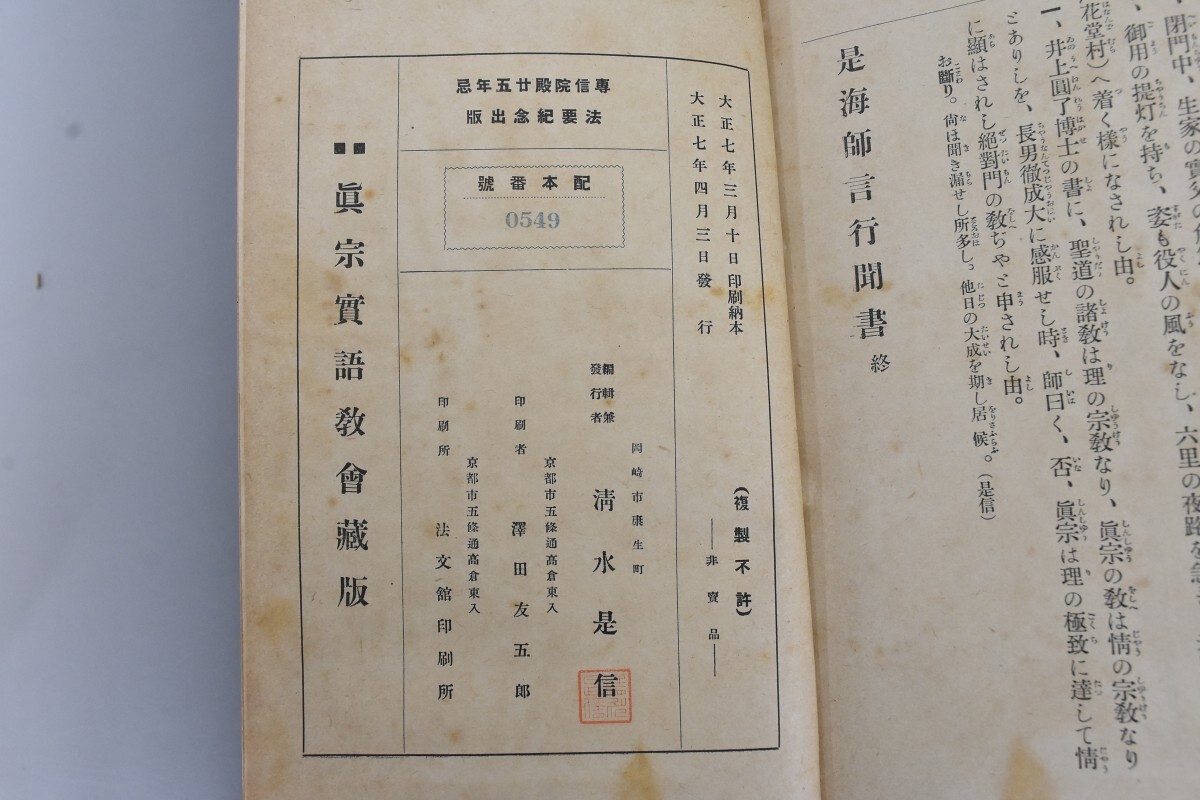 閉門中、生家の
、御用の提灯を持ち、姿も役人の風をなし、六里の夜路を
花堂村)へ着く樣になされし由。
一、井上圓了博士の書に、聖道の諸敎は理の宗敎なり、眞宗の敎は情の宗敎なり
とありしを、長男徹成大に感服せし時、師曰く、否、眞宗は理の極致に達して情
に顯はされし絕對門の敎ぢやと申されし由。
お斷り。尙ほ聞き漏せし所多し。他日の大成を期し居候。(是信)
是海師言行聞書 終
大正七年三月十日印刷納本
大正七年四月三日發行
(複製不許)
―非賣品―
岡崎市康生町
編輯兼發行者 淸水是信
京都市五條通高倉東入
印刷者 澤田友五郎
京都市五條通高倉東入
印刷所 法文館印刷所
專信院殿廿五年忌
法要紀念出版
配本番號
0549
眞宗實語敎會藏版